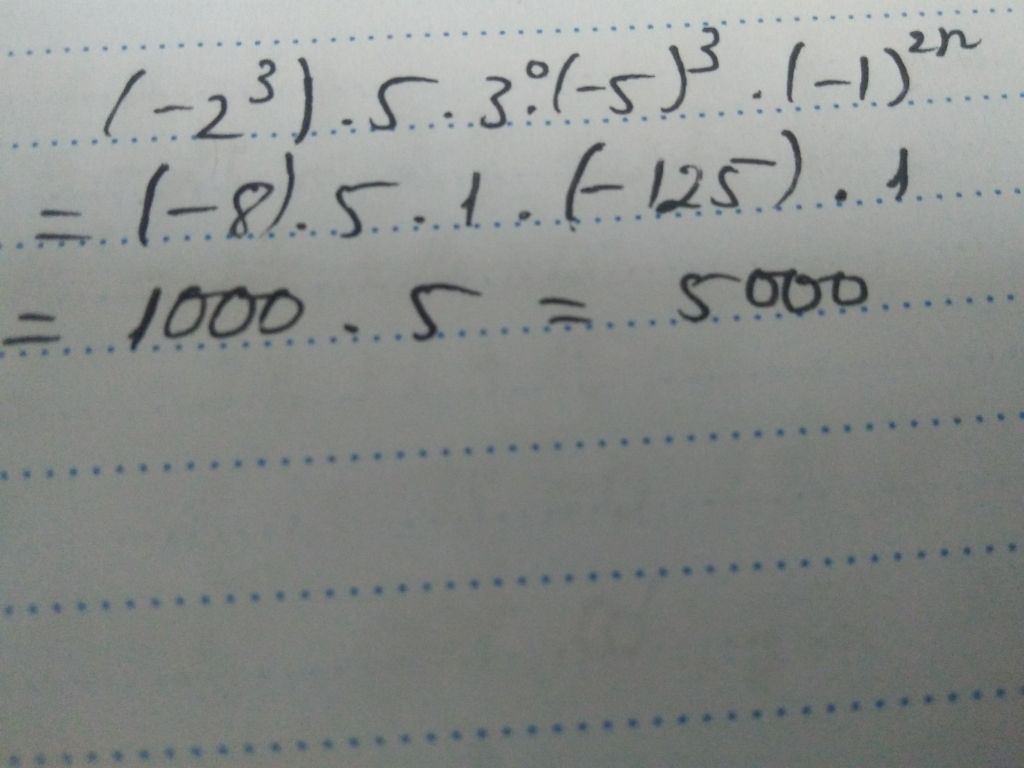 (-2³) . 5 . 3⁰ . (-5)³ . (-1)²ⁿ
= (-8) . 5 . 1 . (-125) . 1
= 1000 . 5 = 5000